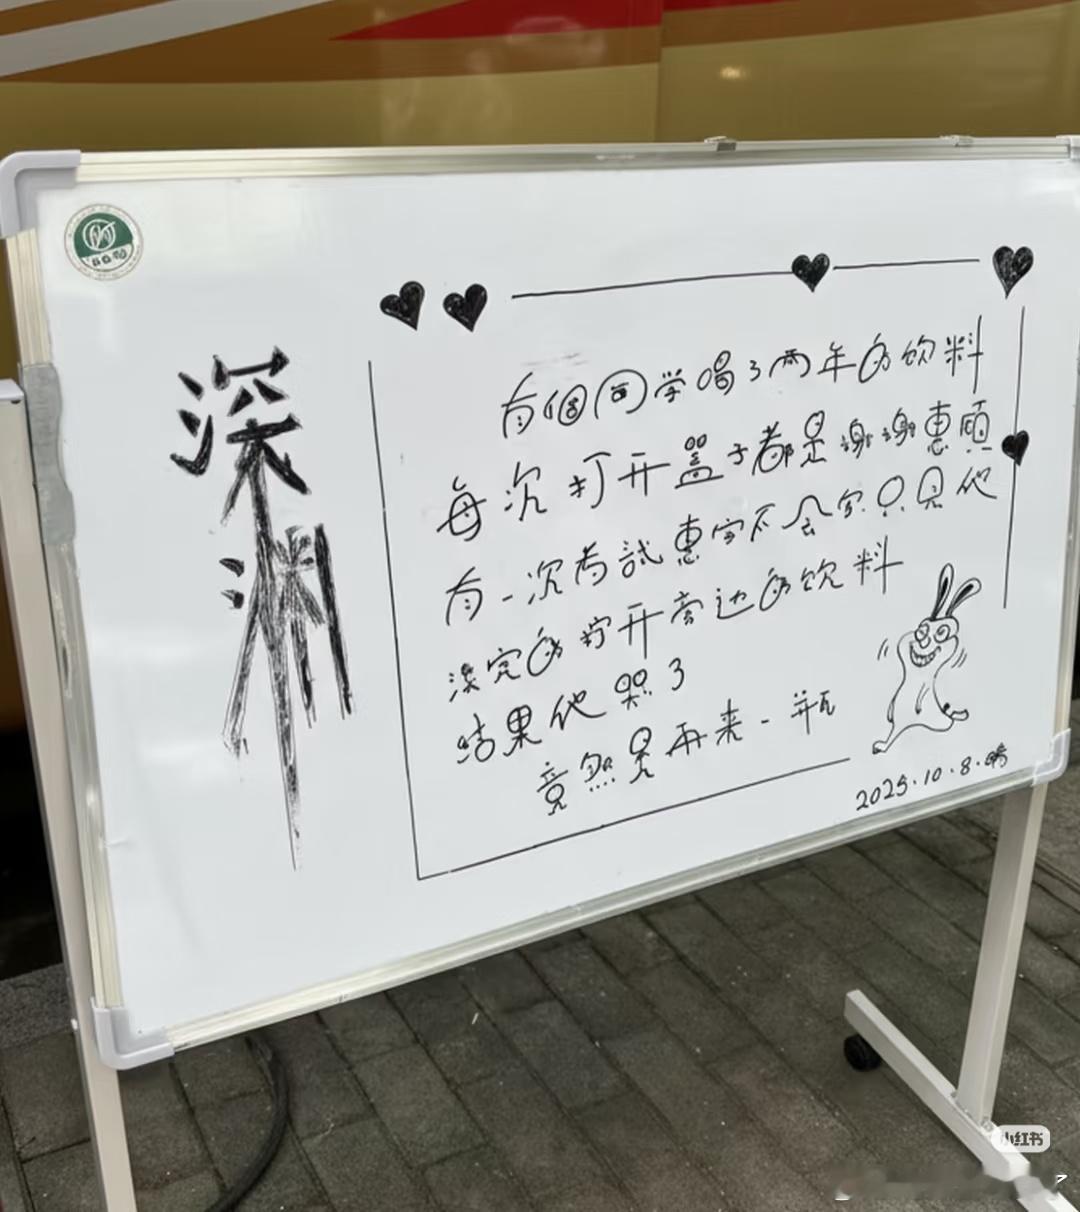 深渊
有個同学喝了两年的饮料
每次打开盖子都是谢谢惠顧
有一次考試惠字不会写只见他
淡定的拧开旁边的饮料
结果他哭了
竟然是再来一瓶
2025.10.8.晴
小红书